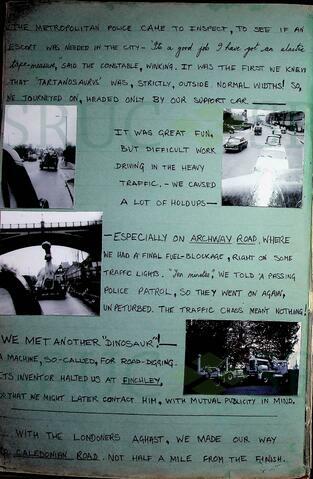 THE METROPOLITAN POLICE CAME TO INSPECT, TO SEE IF AN
ESCORT WAS NEEDED IN THE CITY - "It's a good job I have got an elastic
tape-measure", SAID THE CONSTABLE, WINKING. IT WAS THE FIRST WE KNEW
THAT 'TARTANOSAURUS' WAS, STRICTLY, OUTSIDE NORMAL WIDTHS! SO,
WE JOURNEYED ON, HEADED ONLY BY OUR SUPPORT CAR.
IT WAS GREAT FUN,
BUT DIFFICULT WORK
DRIVING IN THE HEAVY
TRAFFIC. - WE CAUSED
A LOT OF HOLDUPS -
- ESPECIALLY ON ARCHWAY ROAD, WHERE
WE HAD A FINAL FUEL-BLOCKAGE, RIGHT ON SOME
TRAFFIC LIGHTS. "Ten minutes", WE TOLD A PASSING
POLICE PATROL, SO THEY WENT ON AGAIN,
UNPETURBED. THE TRAFFIC CHAOS MEANT NOTHING!
WE MET ANOTHER 'DINOSAUR'! -
A MACHINE, SO-CALLED, FOR ROAD-DIGGING.
ITS INVENTOR HALTED US AT FINCHLEY,
SO THAT WE MIGHT LATER CONTACT HIM, WITH MUTUAL PUBLICITY IN MIND.
... WITH THE LONDONERS AGHAST, WE MADE OUR WAY
TO CALEDONIAN ROAD. NOT HALF A MILE FROM THE FINISH.